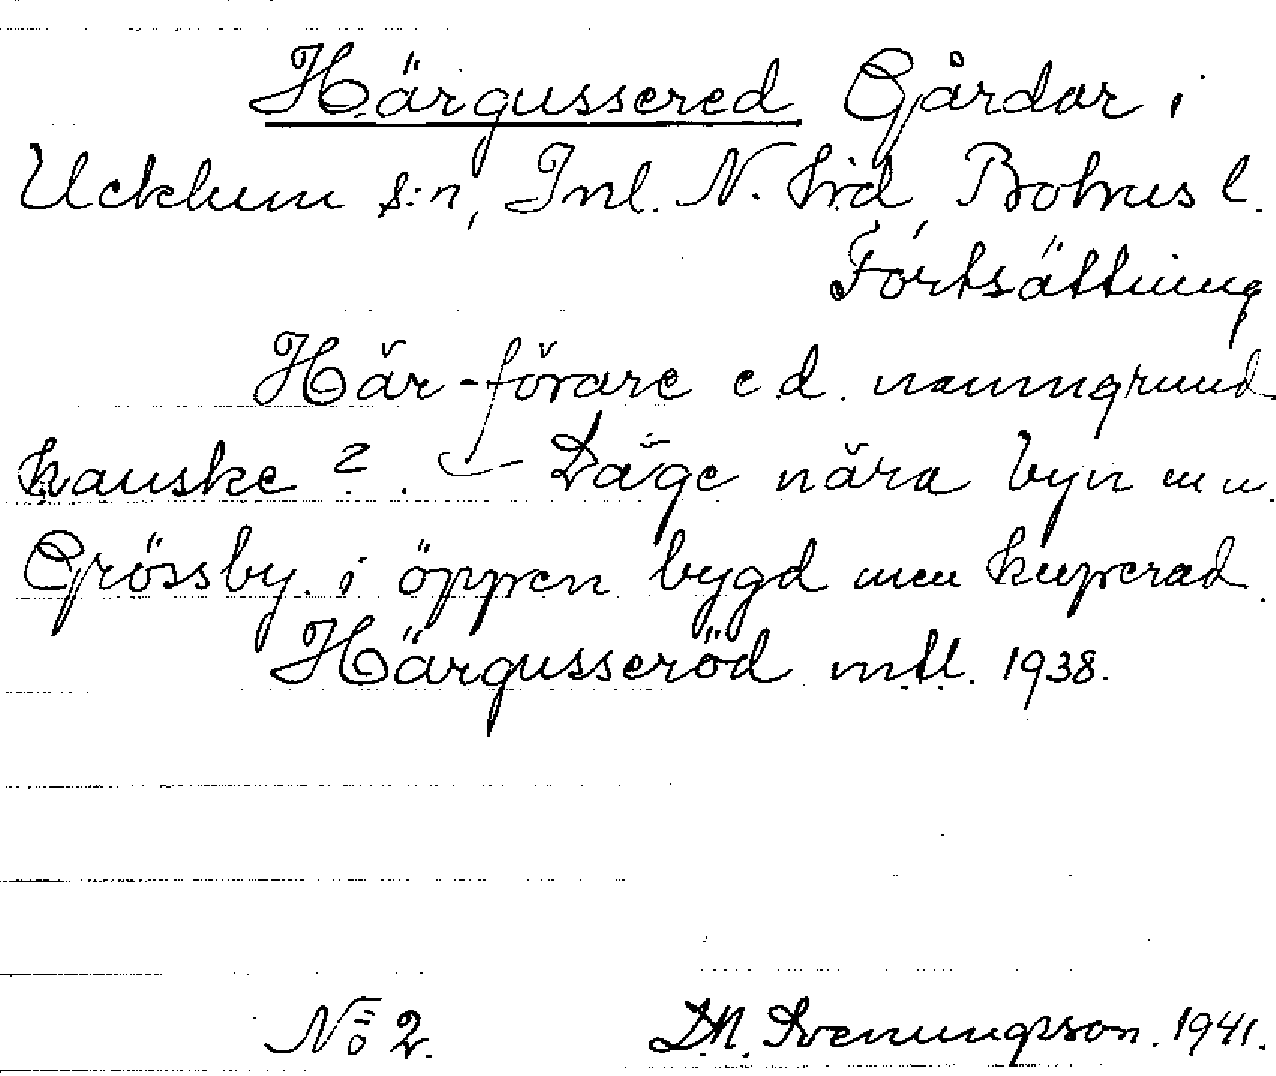 Härgussered Gårdar i
Ucklum s:n, Inl. N. hrd, Bohus l.
Fortsättning
Här-förare e d. namngrund
kanske ?. Läge nära byn m n.
Grössby. i öppen bygd men kuperad.
Härgusseröd mtl. 1938.
No 2. D.N. Svenungsson. 1941.